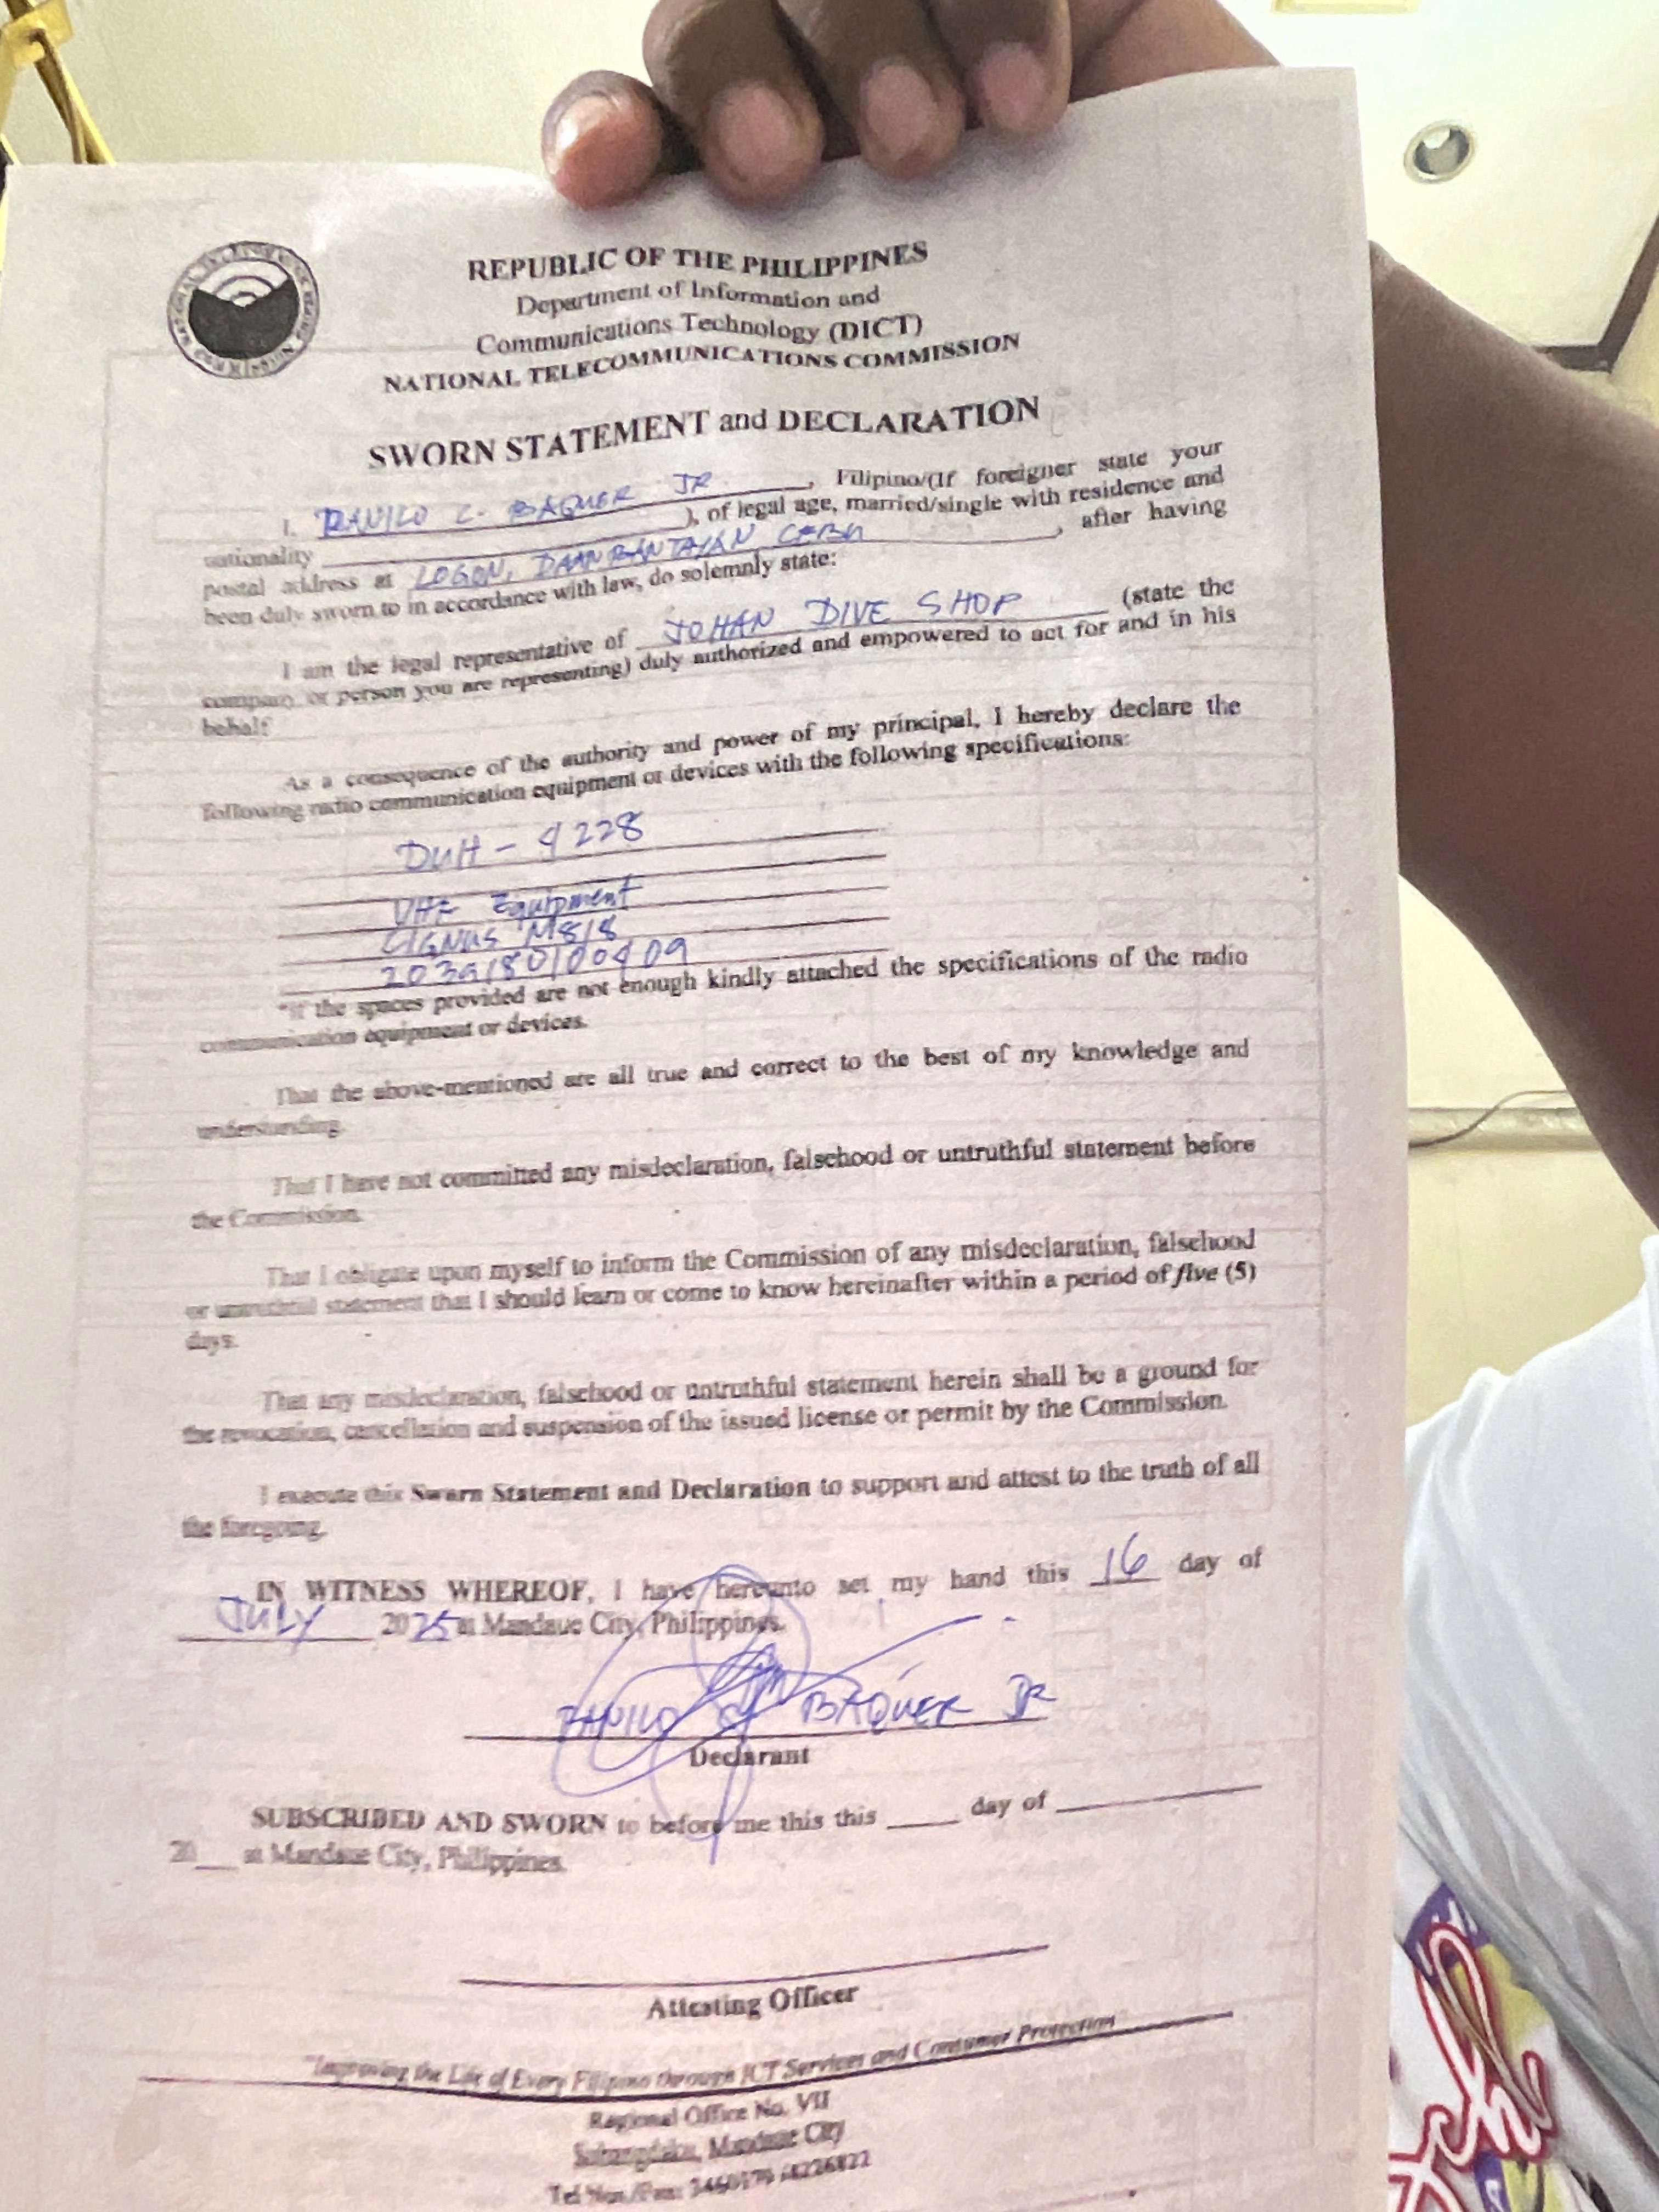 REPUBLIC OF THE PHILIPPINES
Department of Information and
Communications Technology (DICT)
NATIONAL TELECOMMUNICATIONS COMMISSION
SWORN STATEMENT and DECLARATION
I, DANILO C. BAQUER JR, Filipino/(If foreigner state your
nationality ), of legal age, married/single with residence and
postal address at LOGON, DAANBANTAYAN CEBU, after having
been duly sworn to in accordance with law, do solemnly state:
I am the legal representative of JOHAN DIVE SHOP (state the
company or person you are representing) duly authorized and empowered to act for and in his
behalf
As a consequence of the authority and power of my principal, I hereby declare the
following radio communication equipment or devices with the following specifications:
DUH - 4228
VHF Equipment
CIGNUS M818
*If the spaces provided are not enough kindly attached the specifications of the radio
communication equipment or devices.
That the above-mentioned are all true and correct to the best of my knowledge and
understanding.
That I have not committed any misdeclaration, falsehood or untruthful statement before
the Commission.
That I obligate upon myself to inform the Commission of any misdeclaration, falsehood
or untruthful statement that I should learn or come to know hereinafter within a period of five (5)
days.
That any misdeclaration, falsehood or untruthful statement herein shall be a ground for
the revocation, cancellation and suspension of the issued license or permit by the Commission.
I execute this Sworn Statement and Declaration to support and attest to the truth of all
the foregoing.
IN WITNESS WHEREOF, I have hereunto set my hand this 16 day of
JULY 2025 at Mandaue City, Philippines.
DANILO C. BAQUER JR
Declarant
SUBSCRIBED AND SWORN to before me this this ____ day of ____
20__ at Mandaue City, Philippines.
Attesting Officer
"Improving the Life of Every Filipino through ICT Services and Consumer Protection"
Regional Office No. VII
Subangdaku, Mandaue City
Tel Nos./Fax: